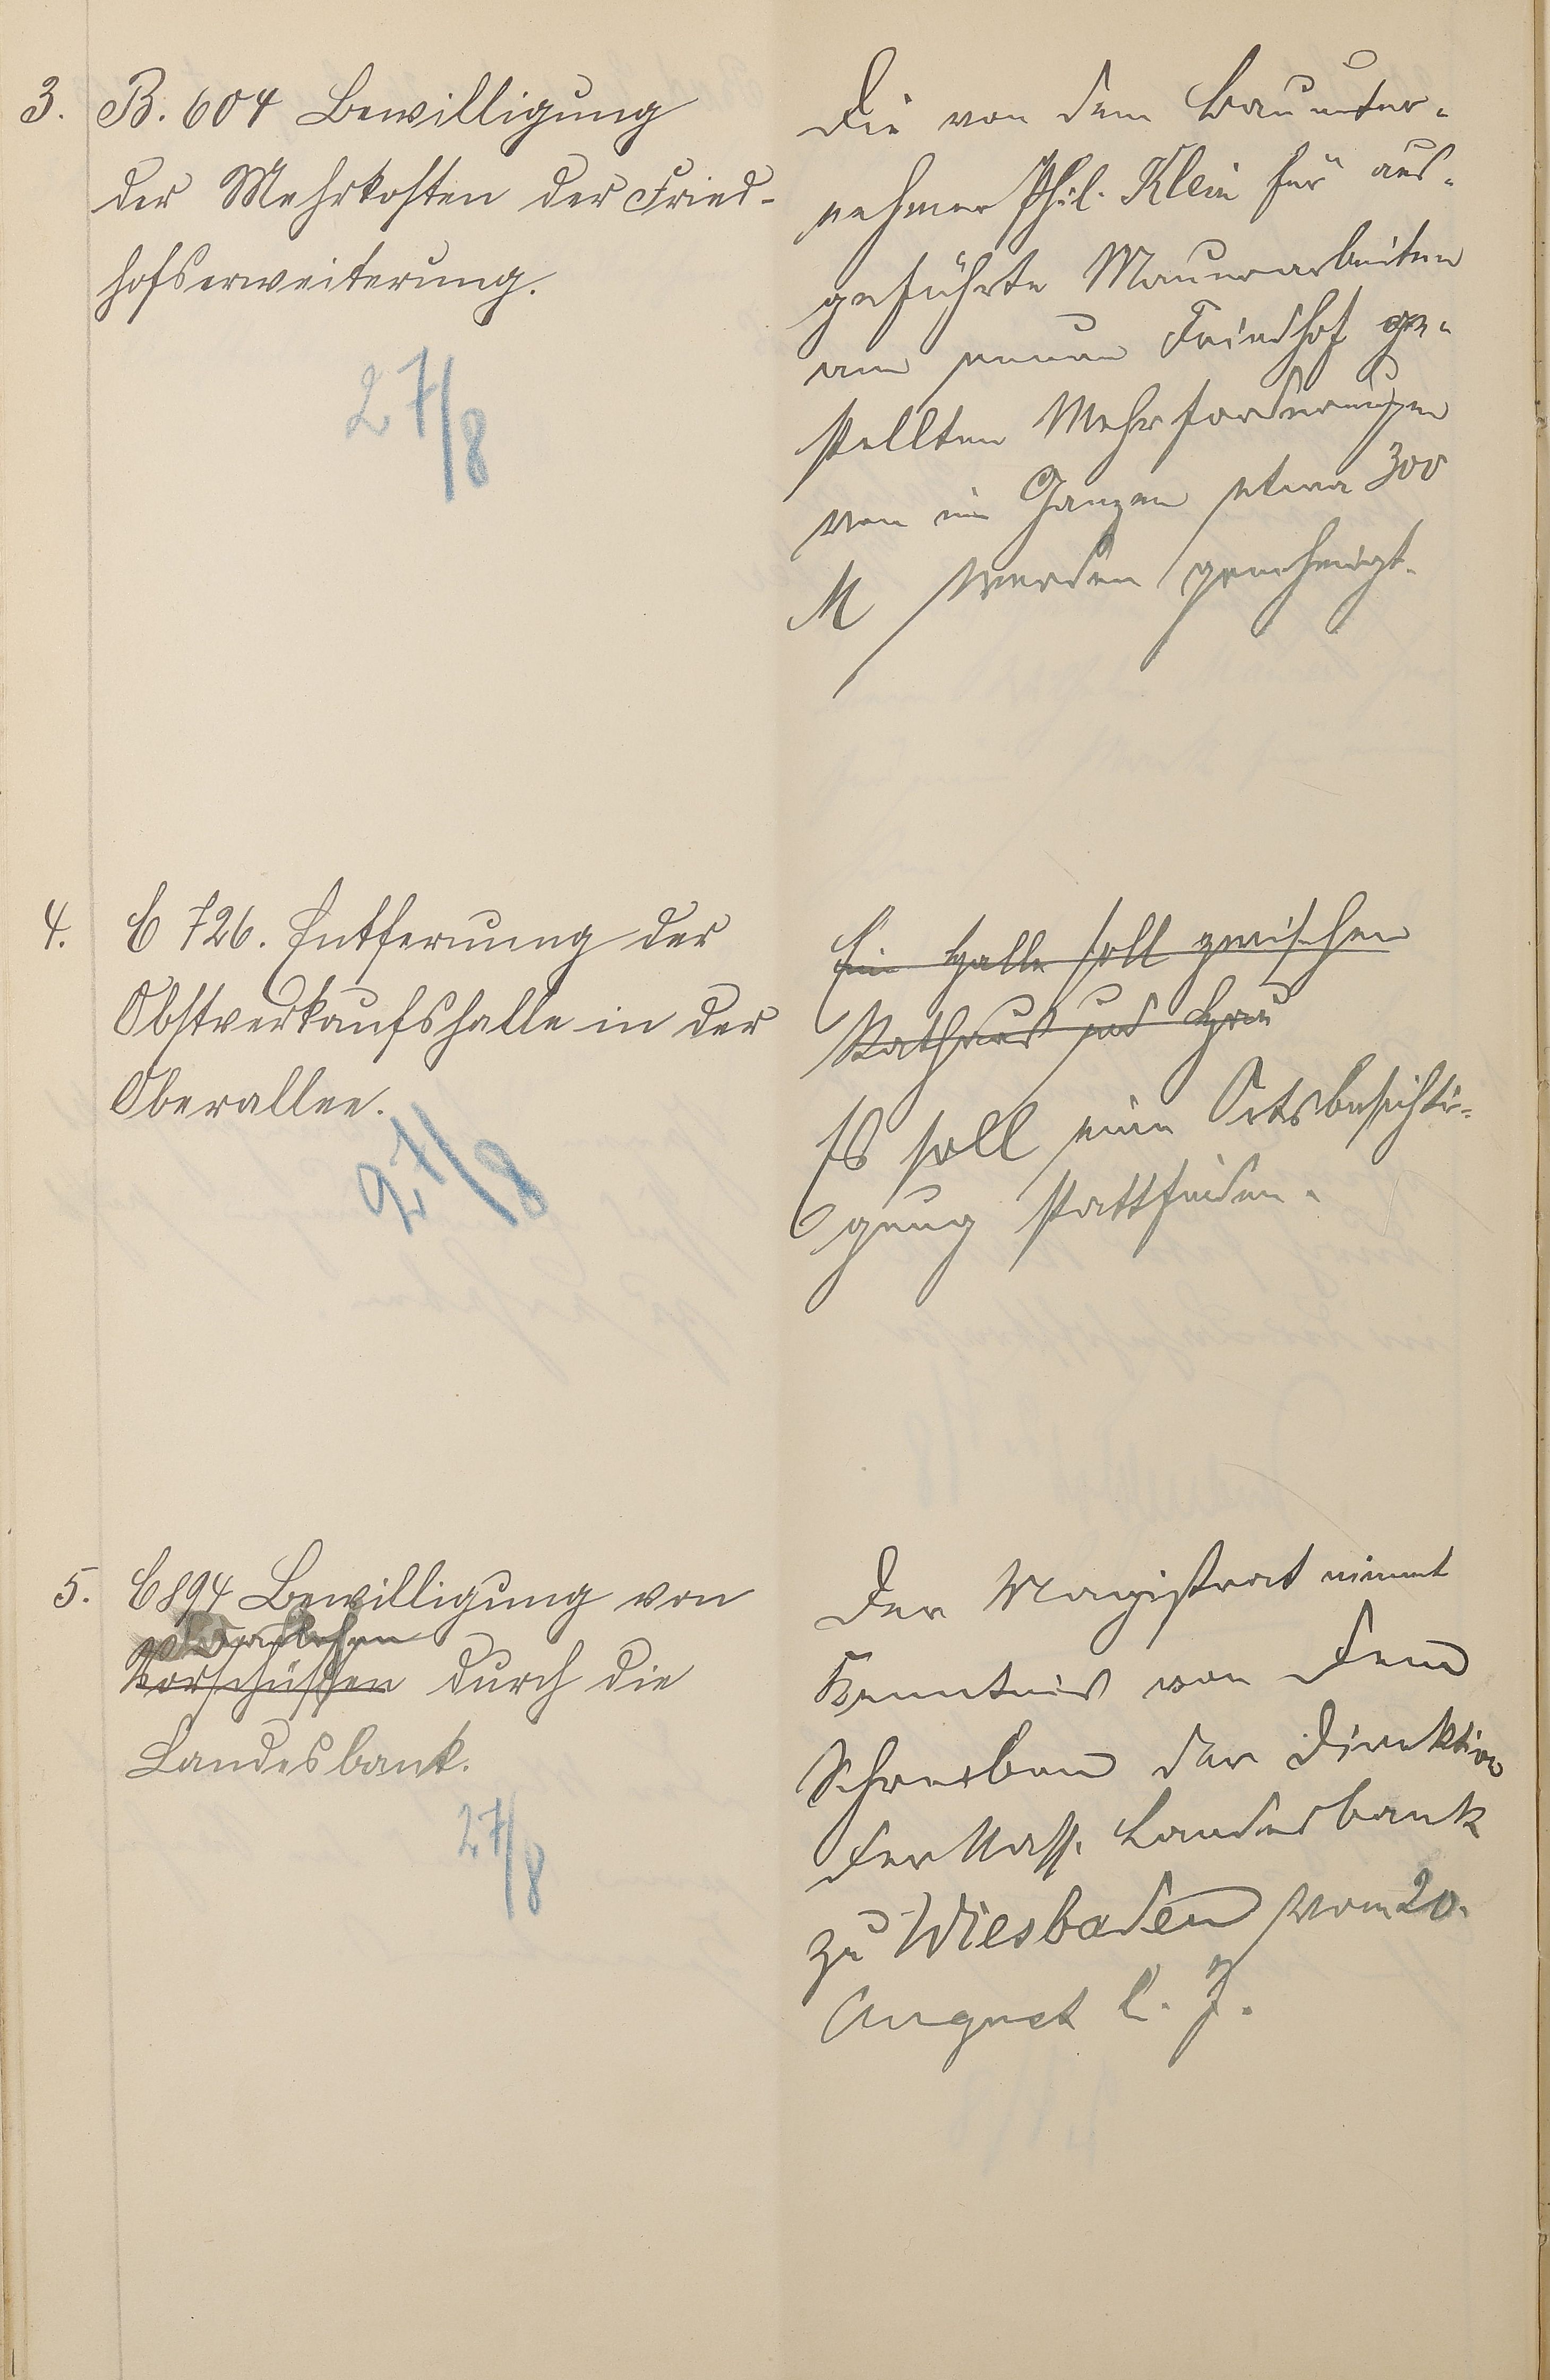 3. B. 604 Bewilligung
der Mehrkosten der Fried-
hofserweiterung.
27/8
Die von dem Bauunter-
nehmer Phil. Klein für aus-
geführte Maurerarbeiten
am neuen Friedhof ge-
stellten Mehrforderungen
von im Ganzen etwa 300
M werden genehmigt.
4. C 726. Entfernung der
Obstverkaufshalle in der
Oberallee.
27/8
Die Halle soll zwischen
Rathaus und
Es soll eine Ortsbesichti-
gung stattfinden.
5. C 894 Bewilligung von
Darlehen
Vorschüssen durch die
Landesbank.
27/8
Der Magistrat nimmt
Kenntnis von dem
Schreiben der Direktion
der Nass. Landesbank
zu Wiesbaden vom 20.
August l. J.